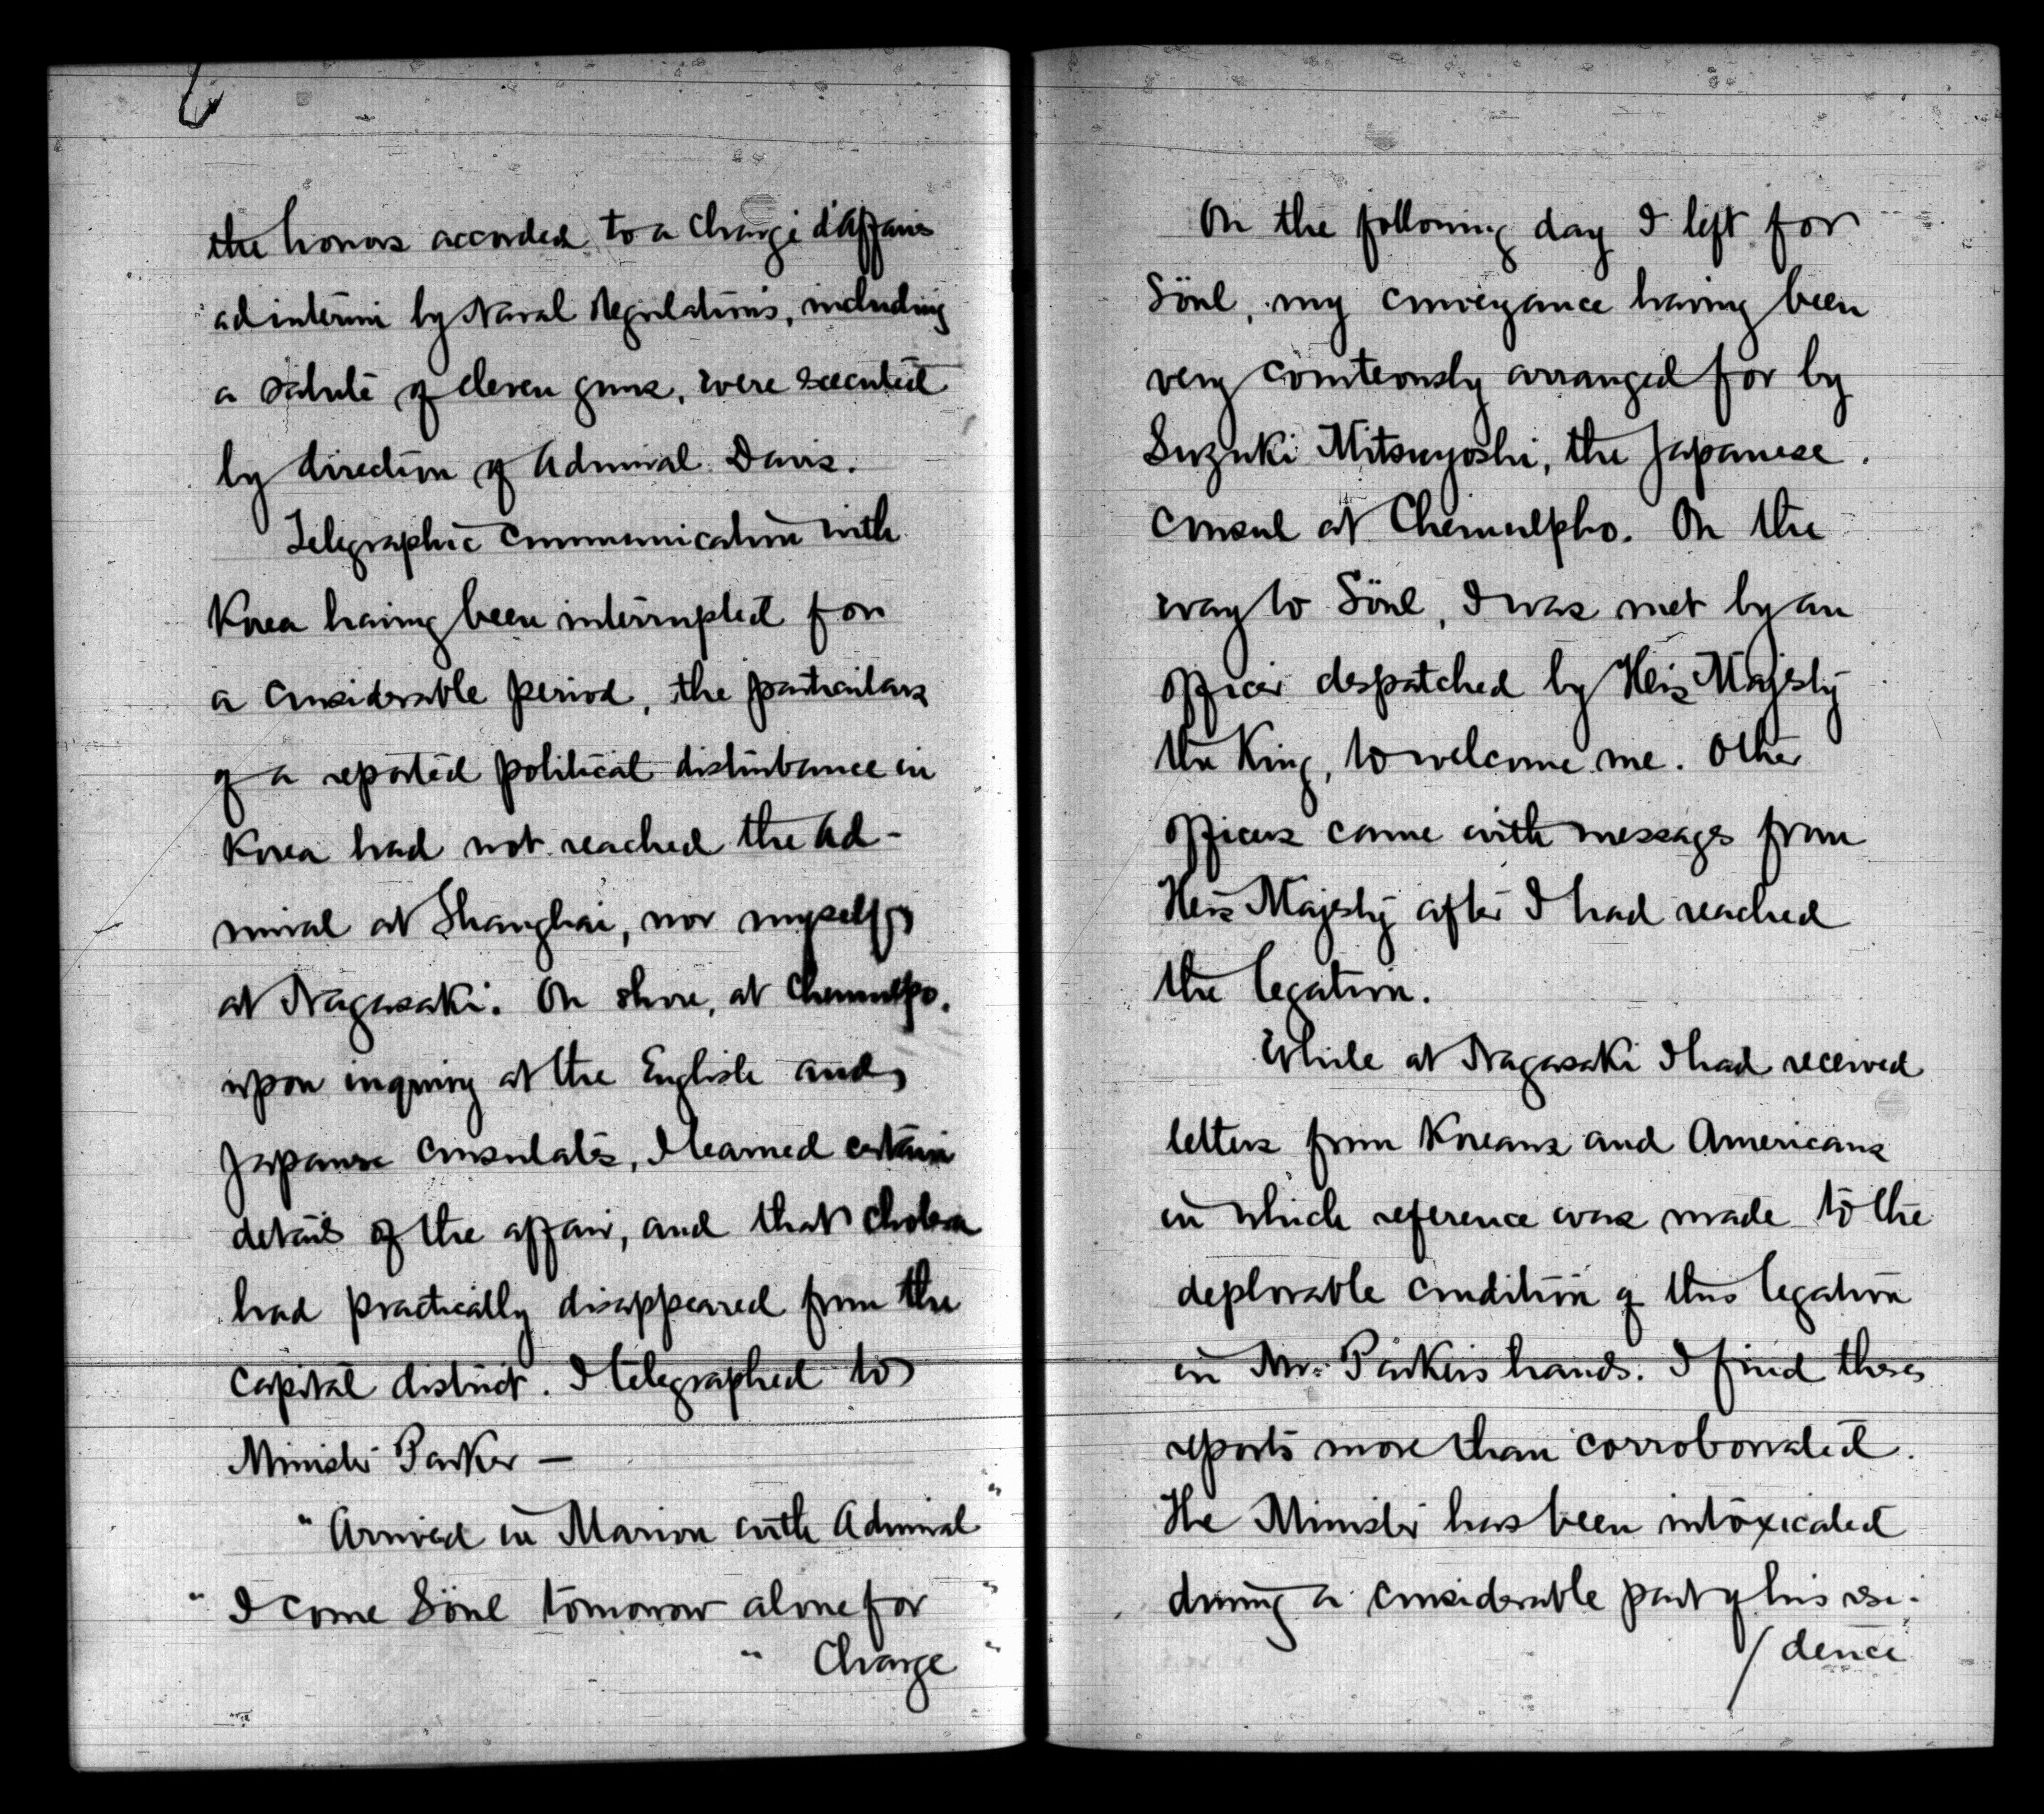 the honors accorded to a Chargé d'Affaires
ad interim by Naval Regulations, including
a salute of eleven guns, were executed
by direction of Admiral Davis.
Telegraphic communication with
Korea having been interrupted for
a considerable period, the particulars
of a reported political disturbance in
Korea had not reached the Ad-
miral at Shanghai, nor myself,
at Nagasaki. On shore, at Chemulpo,
upon inquiry at the English and
Japanese Consulates, I learned certain
details of the affair, and that cholera
had practically disappeared from the
capital district. I telegraphed to
Minister Parker —
"Arrived in Marion with Admiral "
" I come Söul tomorrow alone for "
" Charge "
On the following day I left for
Söul, my conveyance having been
very courteously arranged for by
Suzuki Mitsuyoshi, the Japanese
Consul at Chemulpho. On the
way to Söul, I was met by an
officer despatched by His Majesty
the King, to welcome me. Other
officers came with messages from
His Majesty after I had reached
the legation.
While at Nagasaki I had received
letters from Koreans and Americans
in which reference was made to the
deplorable condition of this legation
in Mr. Parker's hands. I find these
reports more than corroborated.
The Minister has been intoxicated
during a considerable part of his resi-
/dence